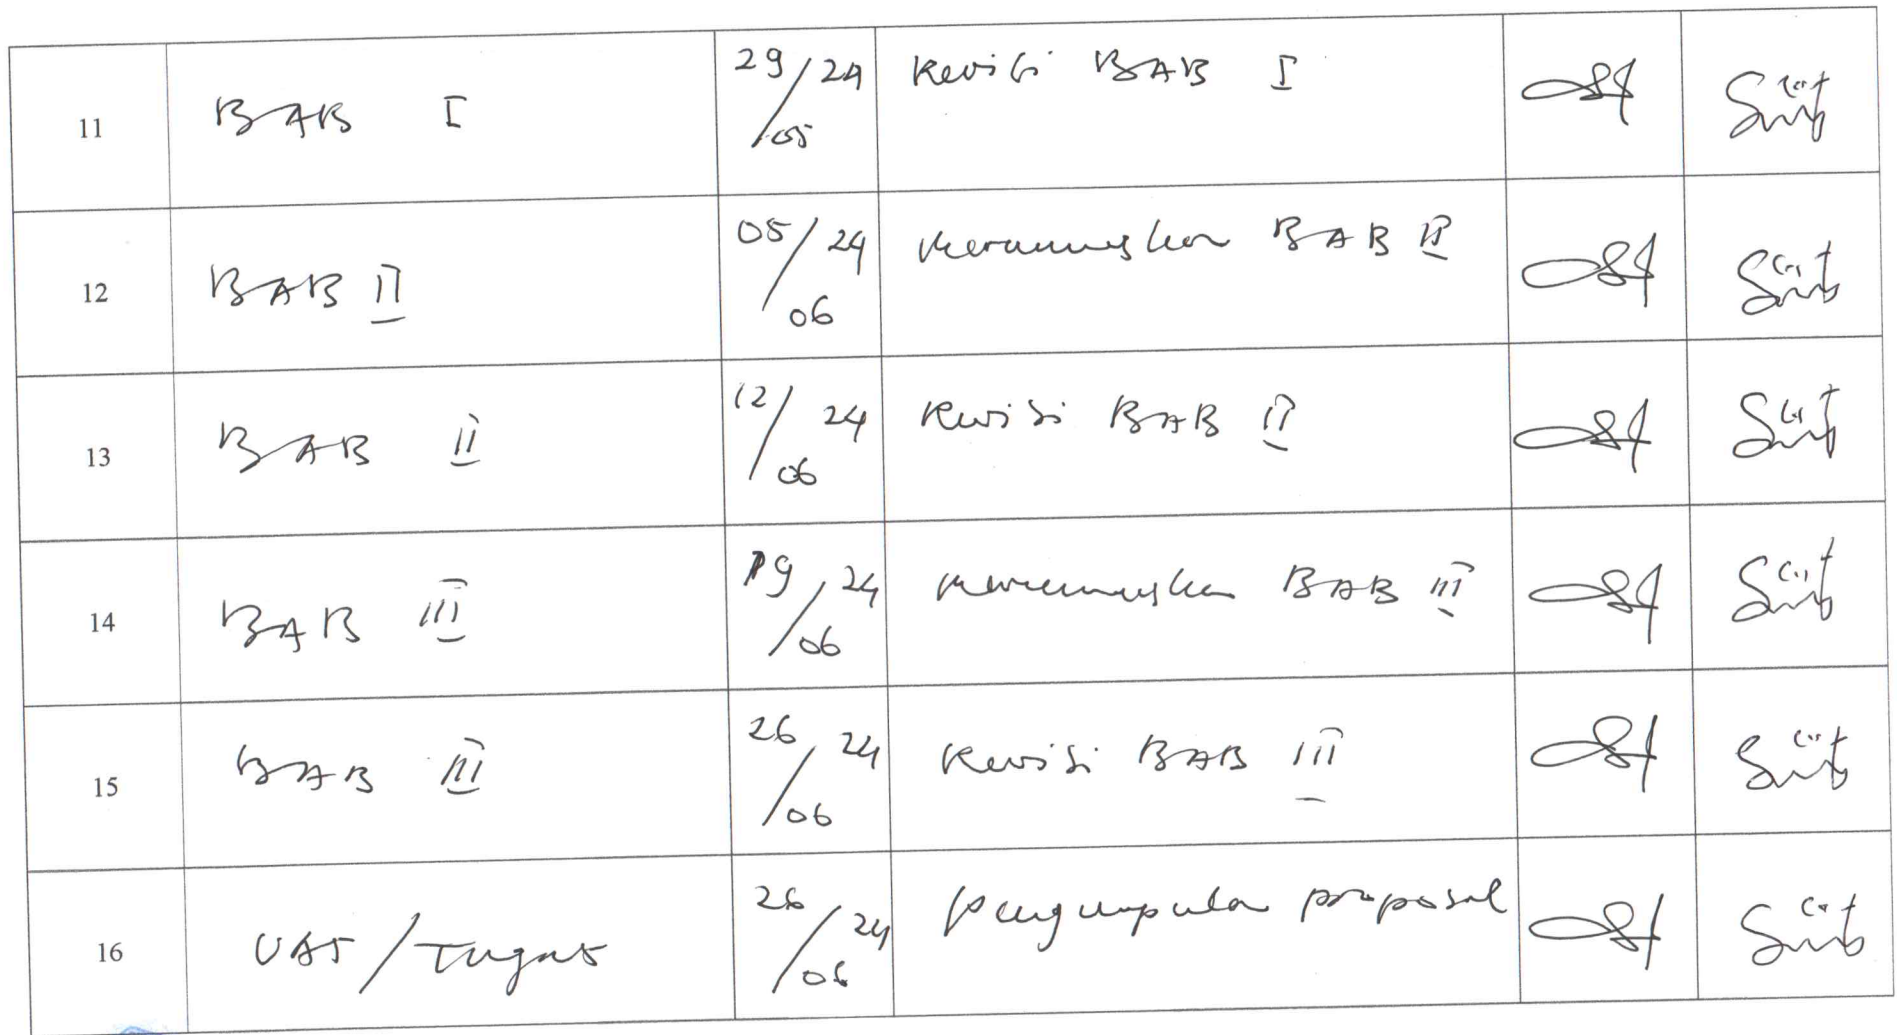 11 BAB I 29/05/24 Revisi BAB I
12 BAB II 05/06/24 Merumuskan BAB II
13 BAB II 12/06/24 Revisi BAB II
14 BAB III 19/06/24 Merumuskan BAB III
15 BAB III 26/06/24 Revisi BAB III
16 UAS/Tugas 26/06/24 Pengumpulan proposal